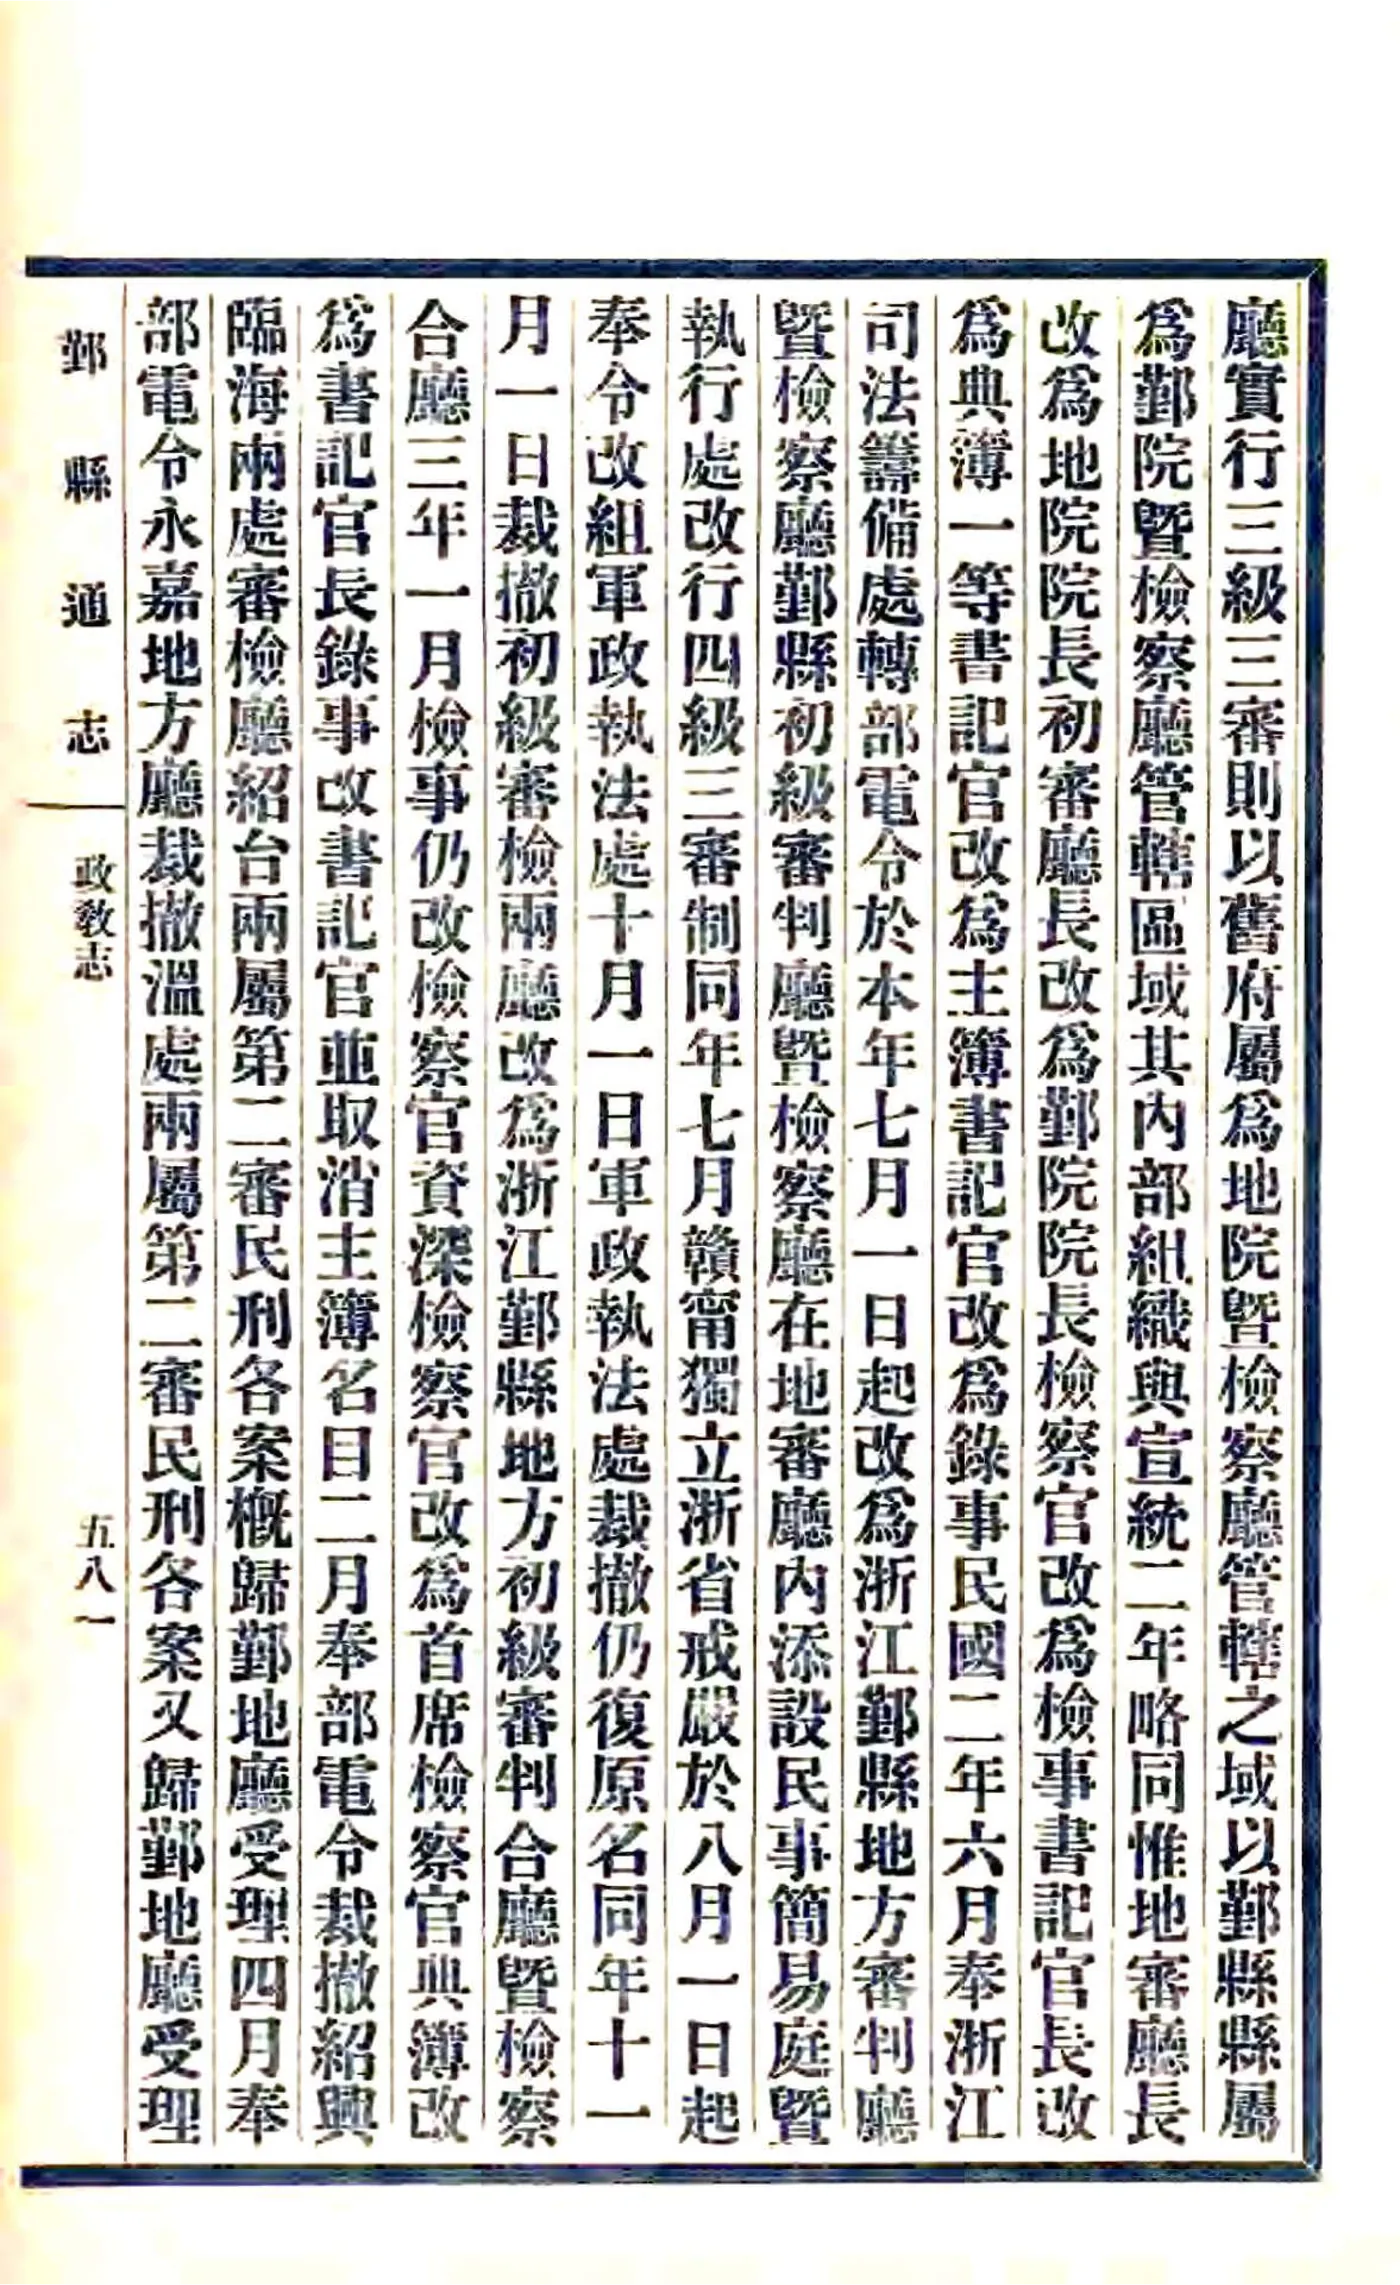 廳實行三級三審則以舊府屬爲地院暨檢察廳管轄之域以鄞縣縣屬
爲鄞院暨檢察廳管轄區域其內部組織與宣統二年略同惟地審廳長
改爲地院院長初審廳長改爲鄞院院長檢察官改爲檢事書記官長改
爲典簿一等書記官改爲主簿書記官改爲錄事民國二年六月奉浙江
司法籌備處轉部電令於本年七月一日起改爲浙江鄞縣地方審判廳
暨檢察廳鄞縣初級審判廳暨檢察廳在地審廳內添設民事簡易庭暨
執行處改行四級三審制同年七月贛甯獨立浙省戒嚴於八月一日起
奉令改組軍政執法處十月一日軍政執法處裁撤仍復原名同年十一
月一日裁撤初級審檢兩廳改爲浙江鄞縣地方初級審判合廳暨檢察
合廳三年一月檢事仍改檢察官資深檢察官改爲首席檢察官典簿改
爲書記官長錄事改書記官並取消主簿名目二月奉部電令裁撤紹興
臨海兩處審檢廳紹台兩屬第二審民刑各案概歸鄞地廳受理四月奉
部電令永嘉地方廳裁撤溫處兩屬第二審民刑各案又歸鄞地廳受理
鄞縣通志
政敎志
五八一